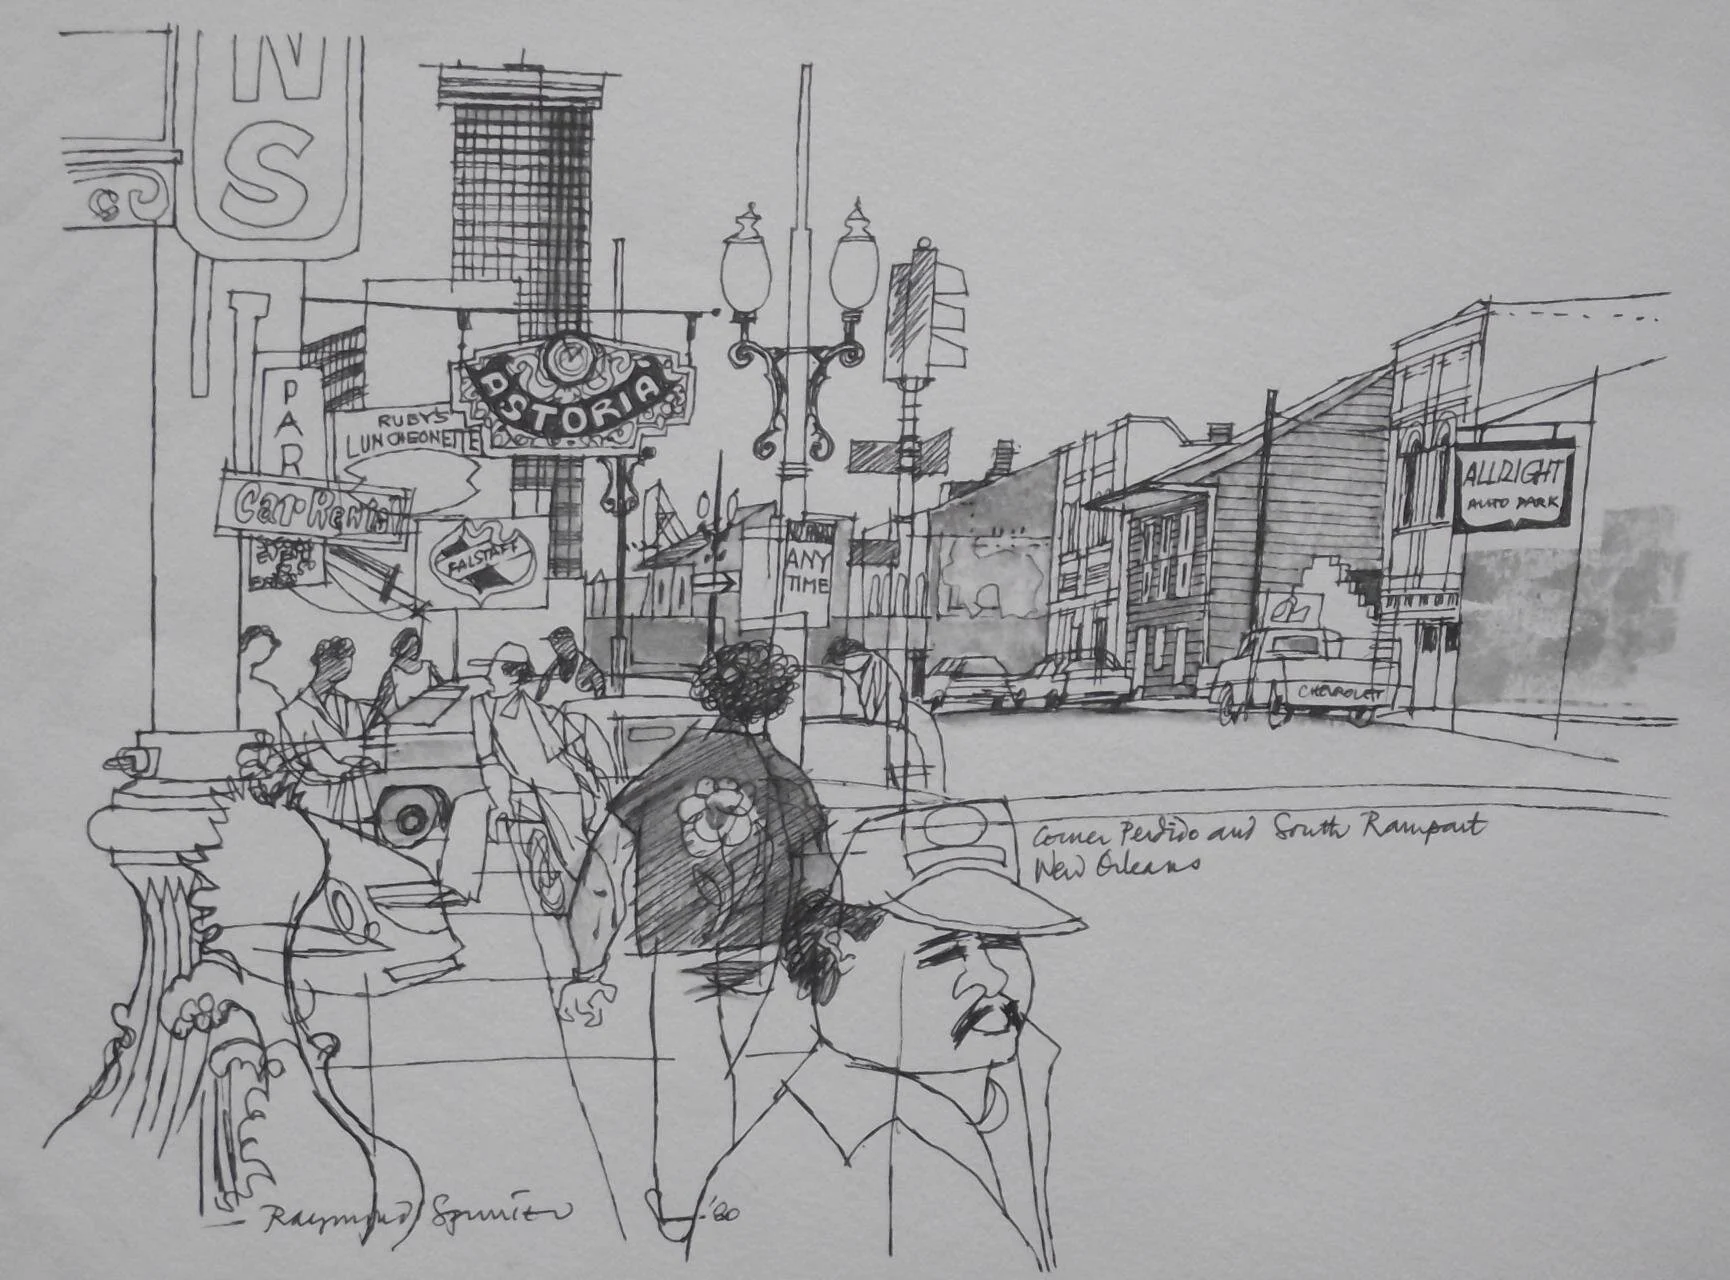 N
S
PAR
RUBY'S
LUNCHEONETTE
ASTORIA
Car Rental
FALSTAFF
ANY
TIME
ALLRIGHT
AUTO PARK
CHEVROLET
Corner Perdido and South Rampart
New Orleans
Raymond Spinner '80